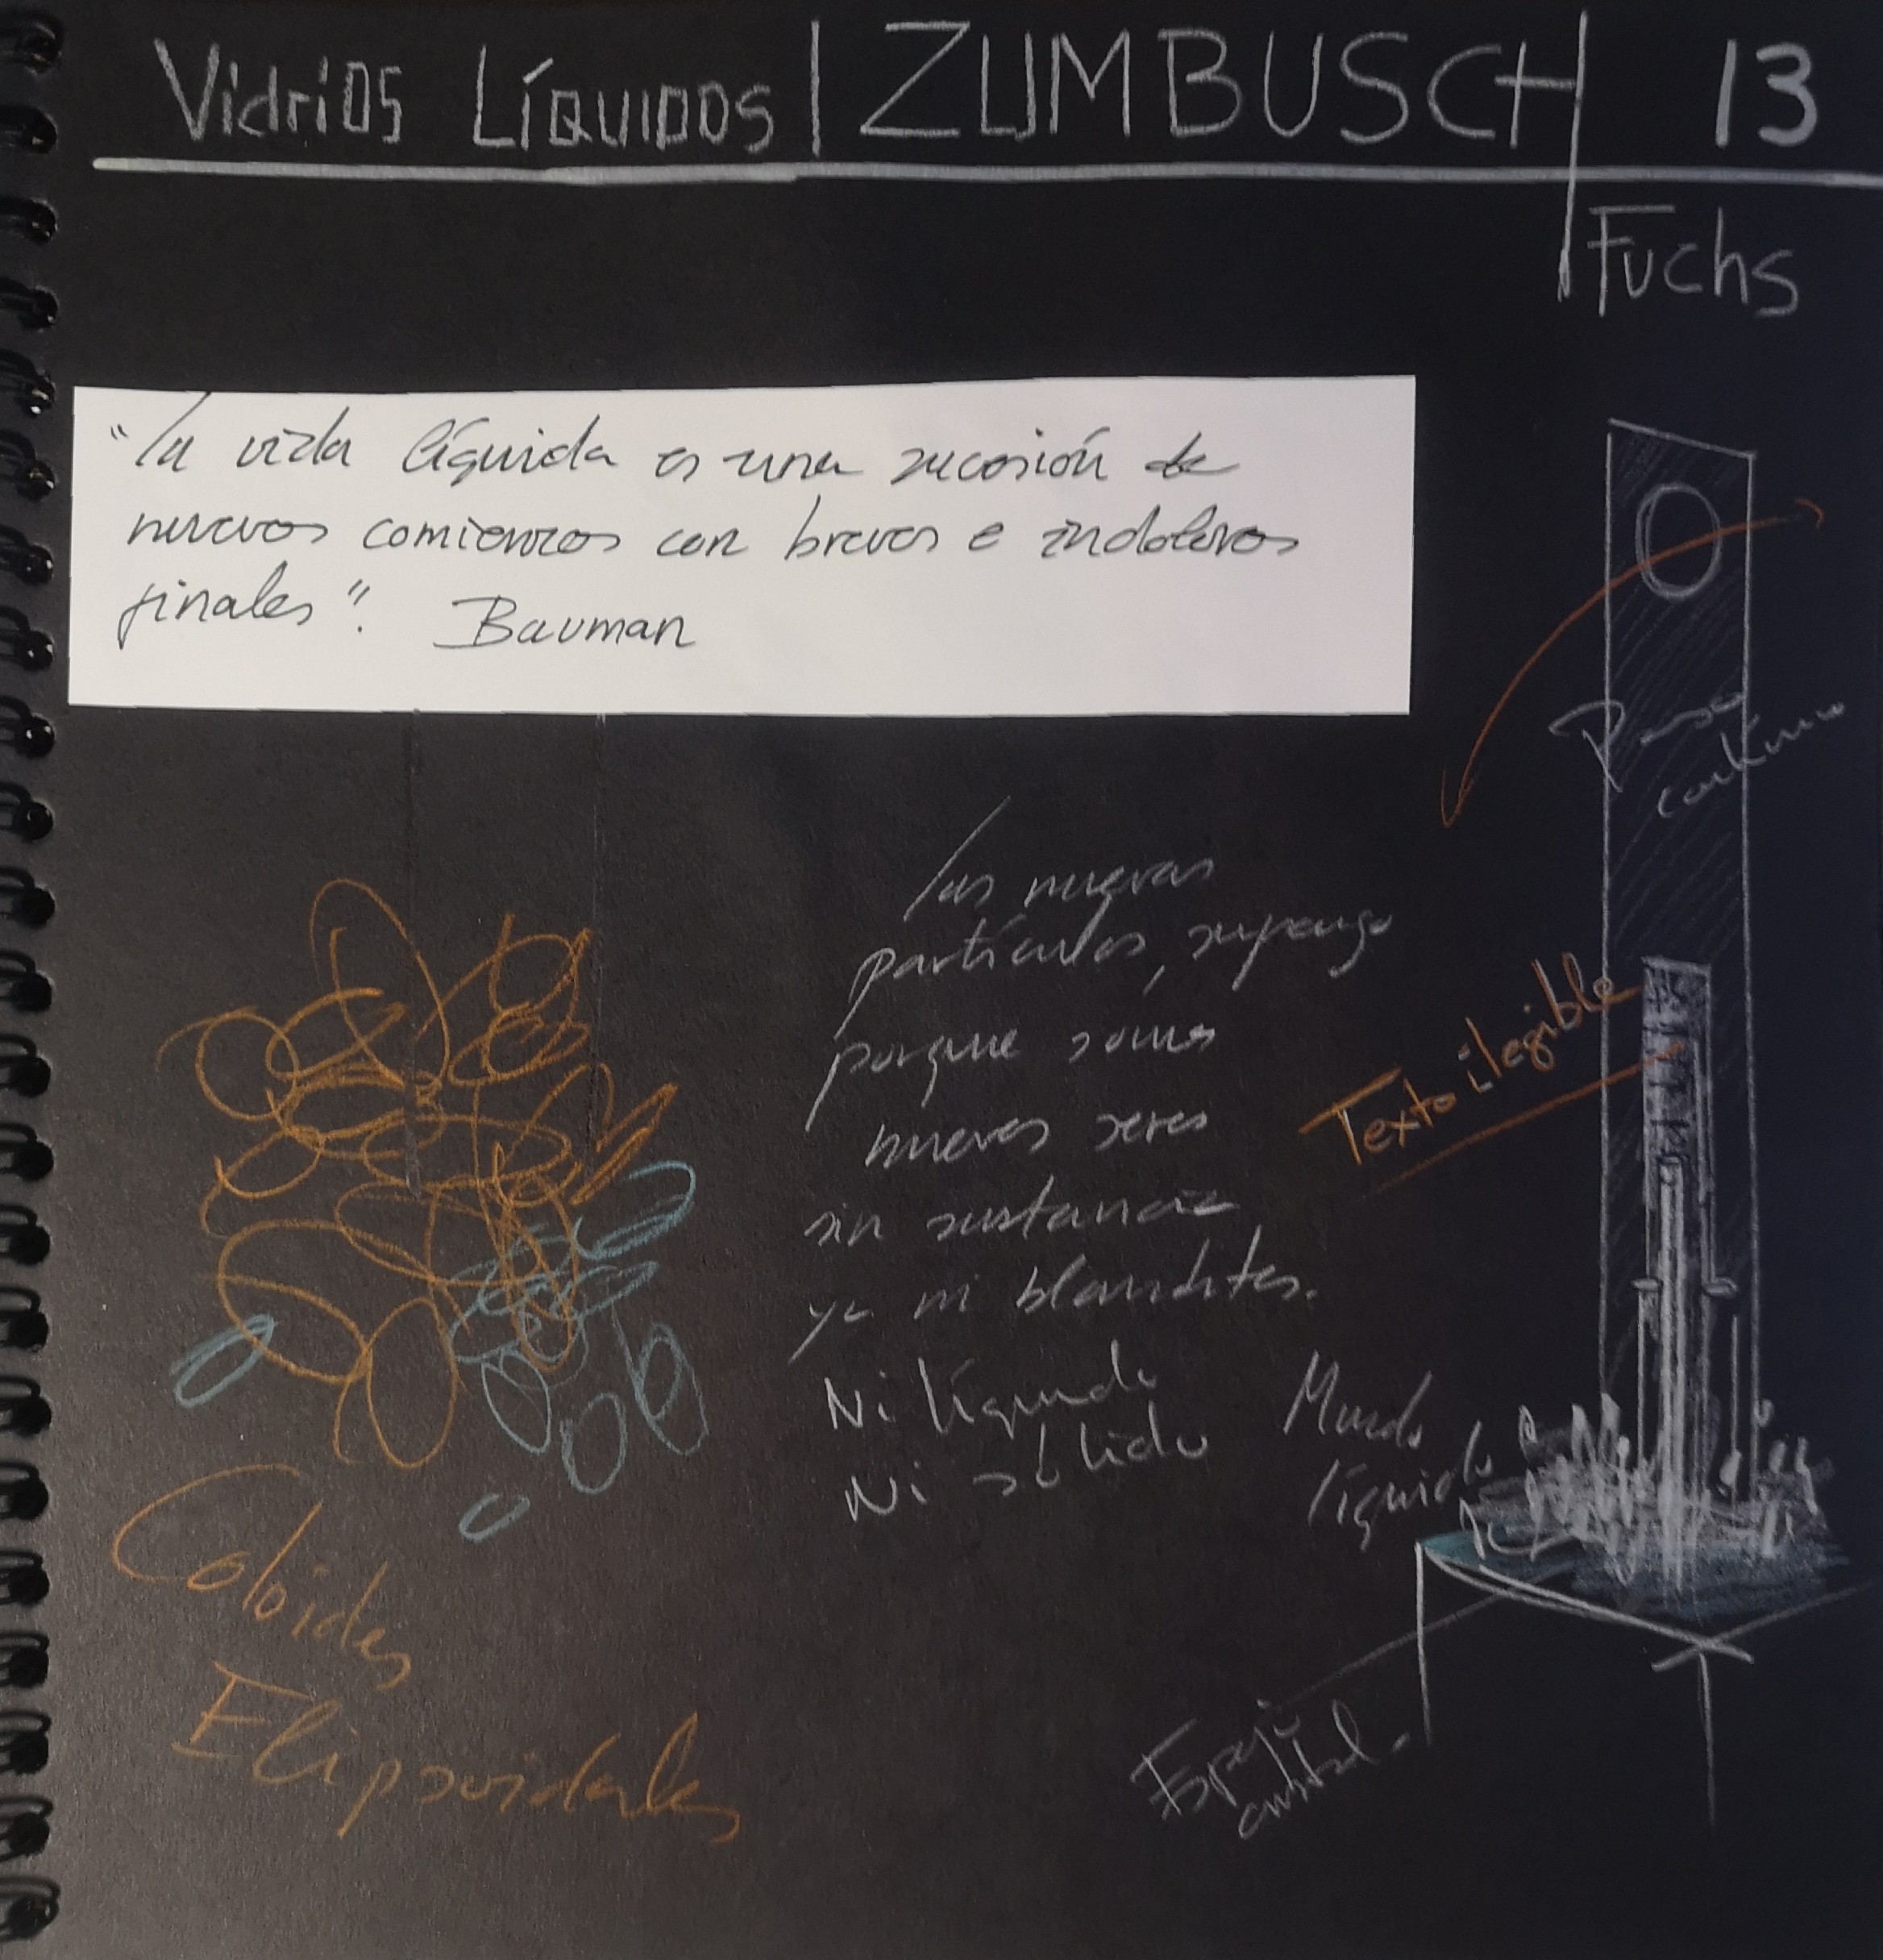 Vidrios Líquidos | ZUMBUSCH 13
Fuchs
"la vida líquida es una sucesión de
nuevos comienzos con breves e indoloros
finales". Bauman
continuo
las nuevas
partículas, supongo
porque somos
nuevos seres
sin sustancia
ya ni blandites.
Ni líquido
Ni sólido
Texto ilegible
Mundo
líquido
Coloides
Elipsoidales
Espejo
cristal